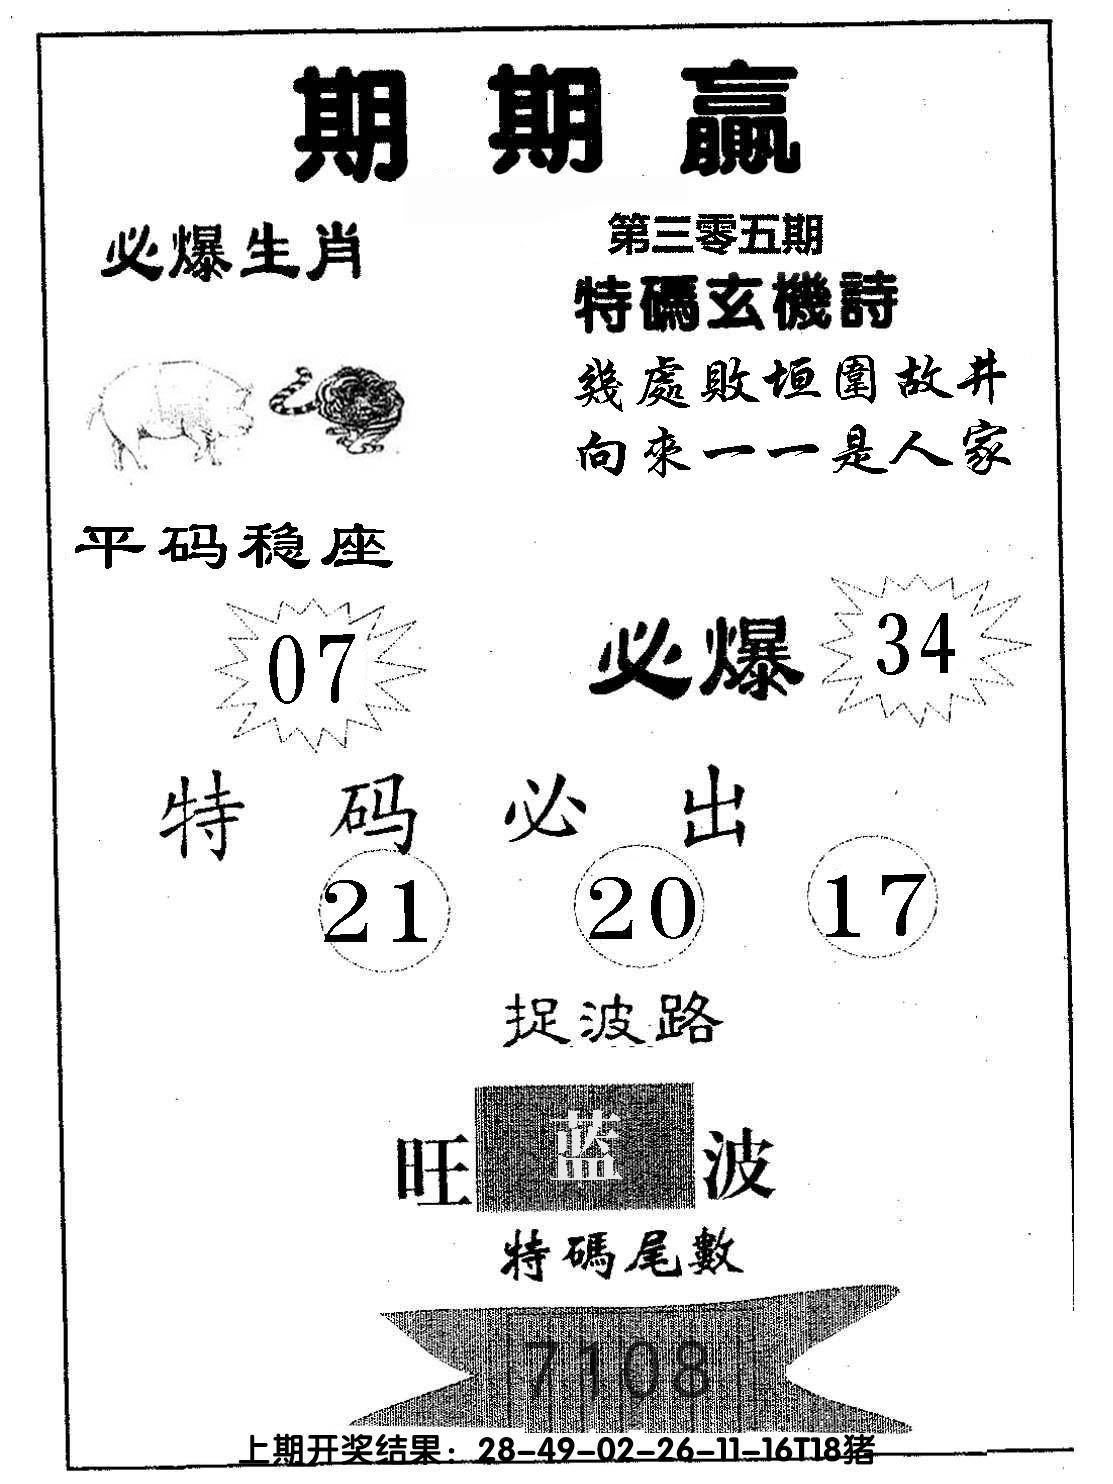 期期赢
必爆生肖
第三零五期
特碼玄機詩
幾處敗垣圍故井
向來一一是人家
平码稳座
07
必爆
34
特码必出
21 20 17
捉波路
旺蓝波
特碼尾數
7108
上期开奖结果：28-49-02-26-11-16T18猪